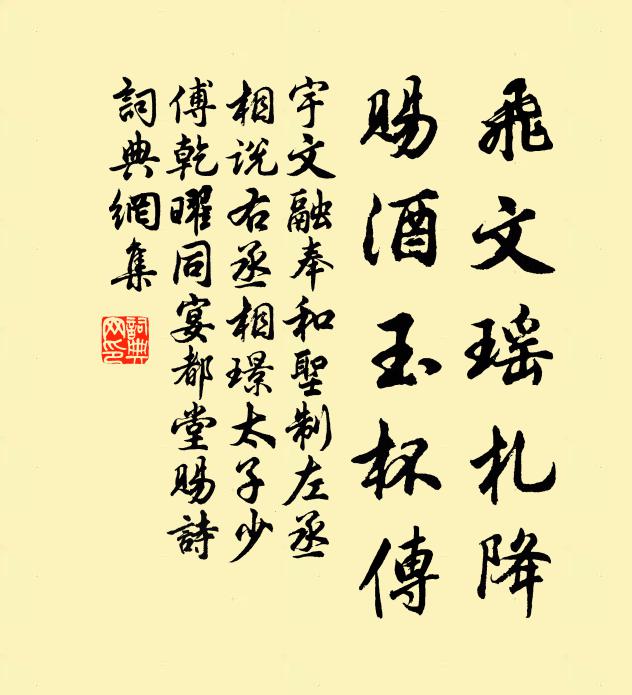 飛文瑶札降
賜酒玉杯傳
宇文融奉和聖制左丞
相说右丞相璟太子少
傅乾曜同宴都堂賜詩
詞典網集
詞典
网印